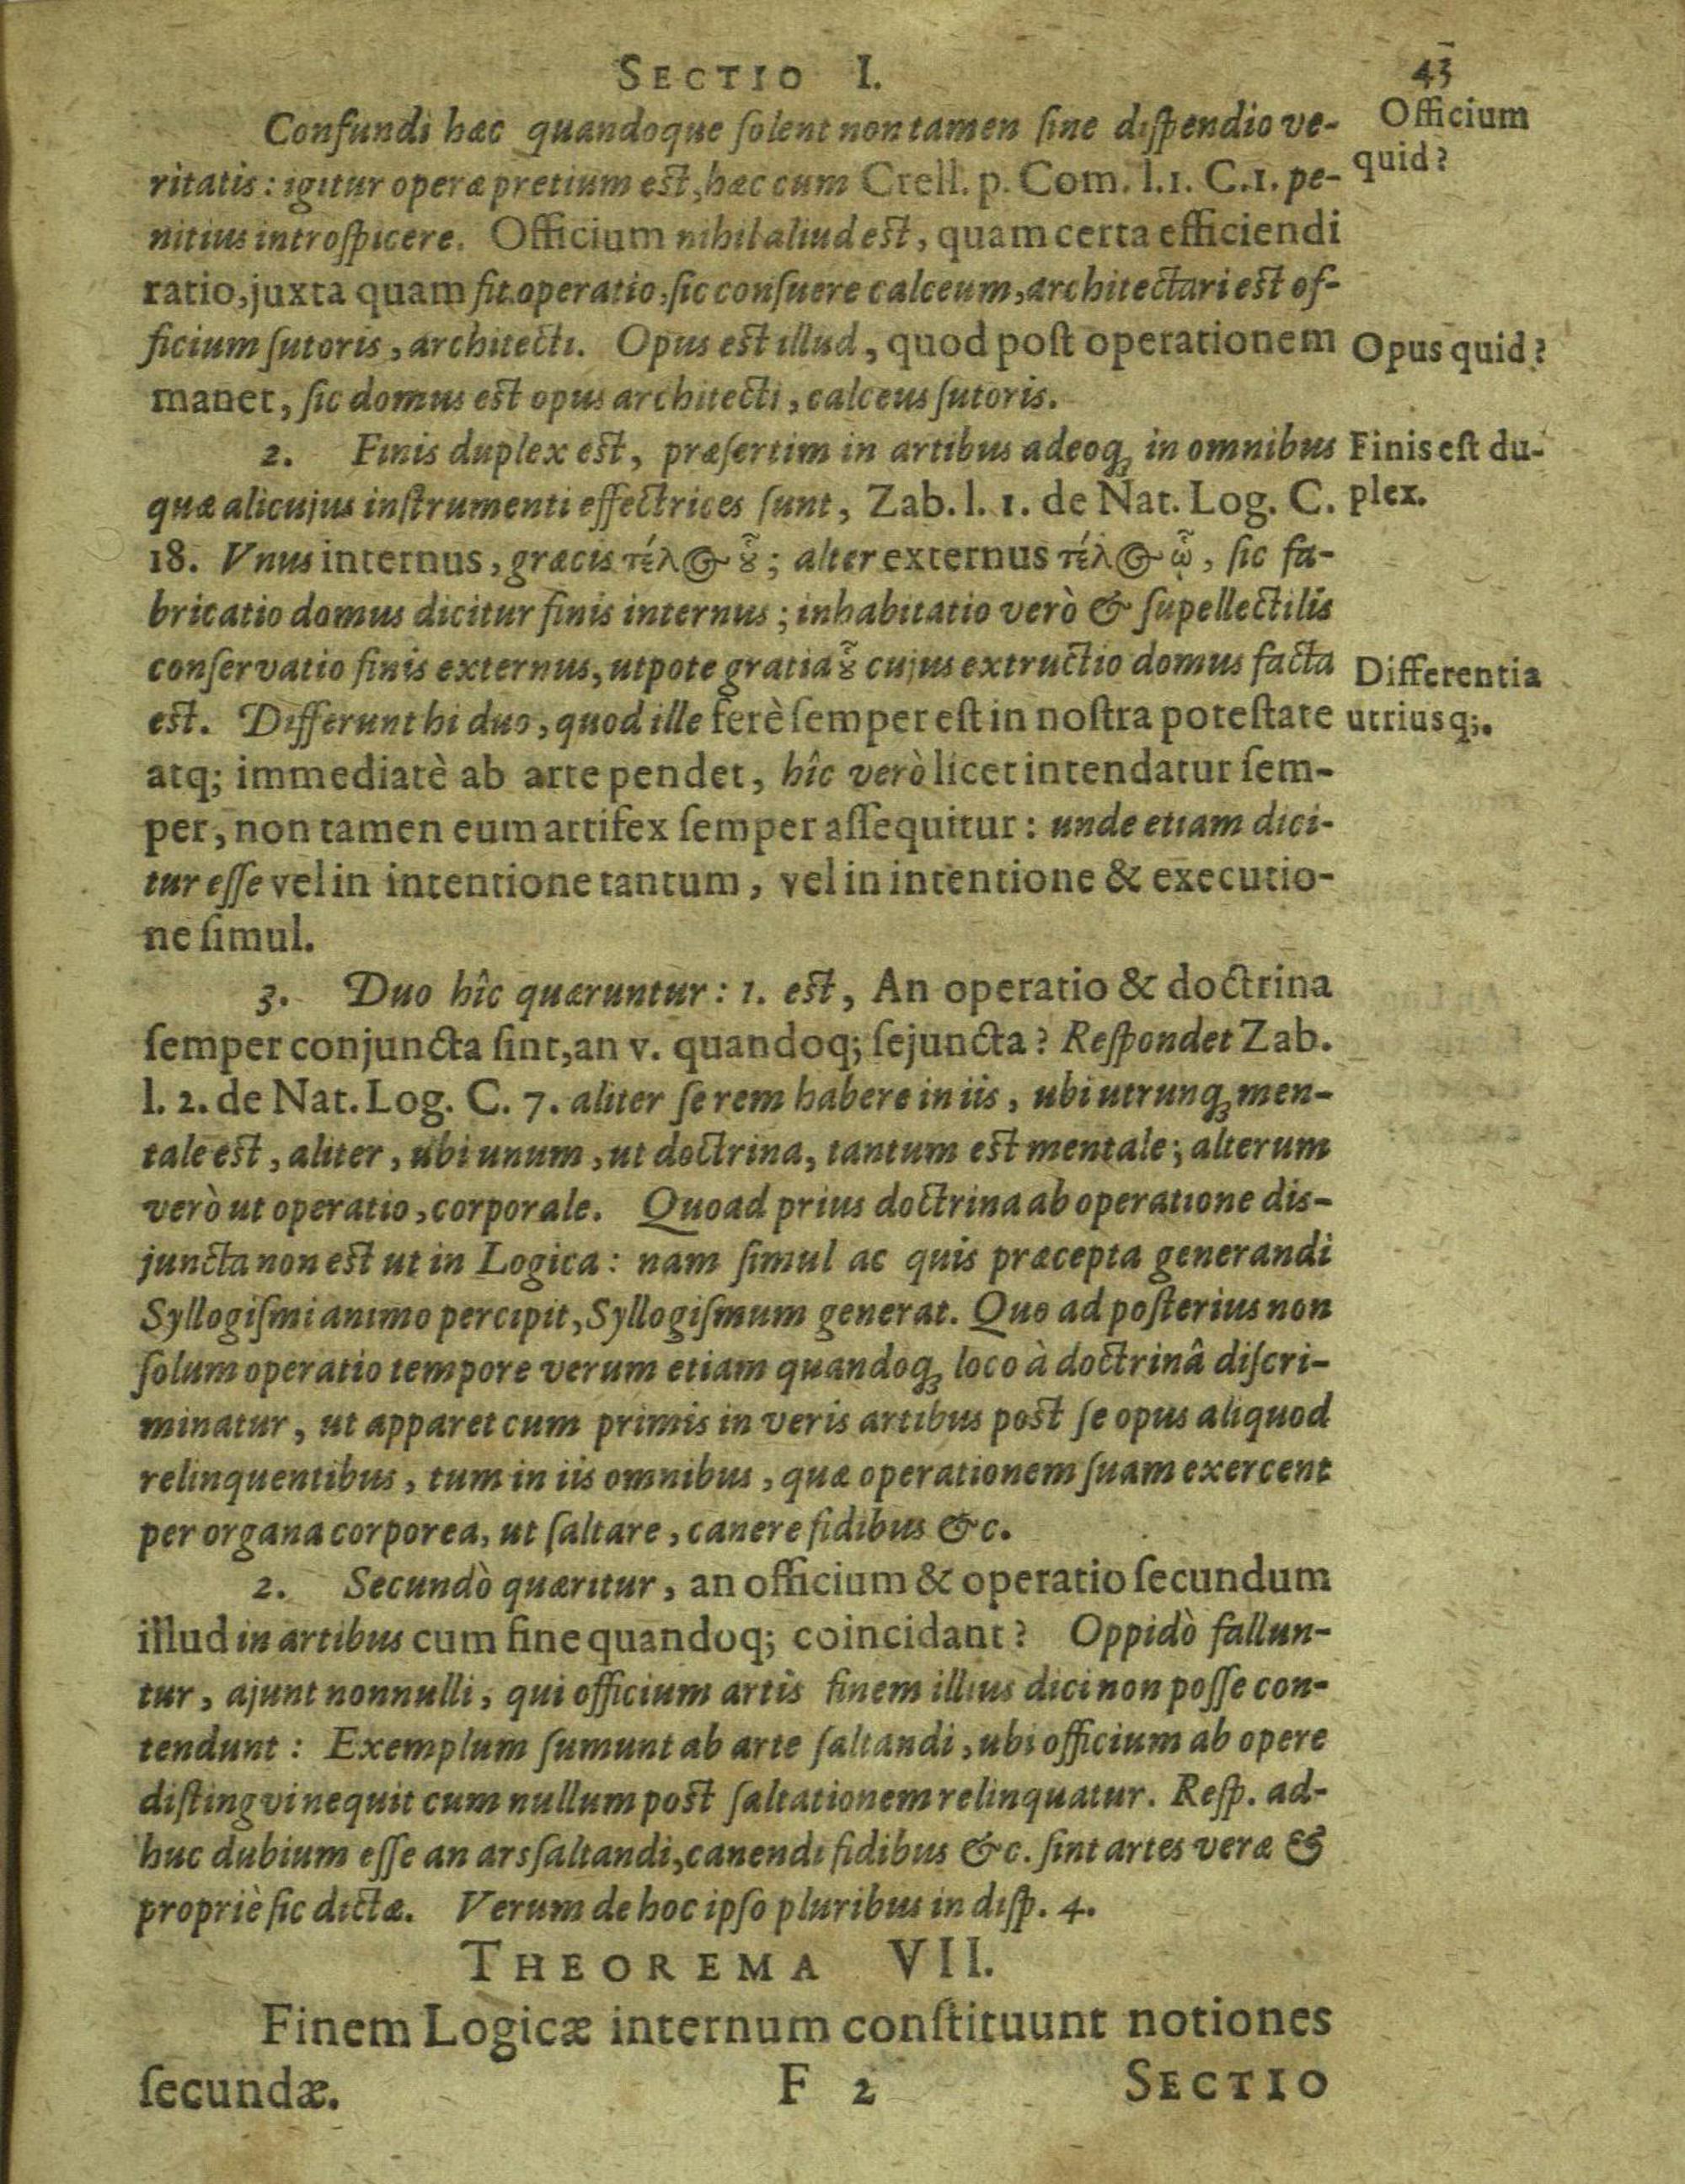 SECTIO I. 43
Confundi hæc quandoque ſolent non tamen ſine diſpendio ve-
Officium
ritatis: igitur operæ pretium est, hæc cum Crell. p. Com. l.1. C.1. pe-
quid?
nitius introſpicere. Officium nihil aliud est, quam certa efficiendi
ratio, juxta quam fit operatio, ſic conſuere calceum, architectari est of-
ficium ſutoris, architecti. Opus est illud, quod poſt operationem
Opus quid?
manet, ſic domus est opus architecti, calceus ſutoris.
2. Finis duplex est, præſertim in artibus adeoq; in omnibus
Finis eſt du-
quæ alicujus inſtrumenti effectrices ſunt, Zab. l. 1. de Nat. Log. C.
plex.
18. Vnus internus, græcis τέλ&ȣ͂; alter externus τέλ&ᾧ, ſic fa-
bricatio domus dicitur finis internus; inhabitatio verò & ſupellectilis
conſervatio finis externus, utpote gratia ȣ͂ cujus extructio domus facta
Differentia
est. Differunt hi duo, quod ille ferè ſemper eſt in noſtra poteſtate
utriusq;.
atq; immediatè ab arte pendet, hîc verò licet intendatur ſem-
per, non tamen eum artifex ſemper aſſequitur: unde etiam dici-
tur eſſe vel in intentione tantum, vel in intentione & executio-
ne ſimul.
3. Duo hîc quæruntur: 1. est, An operatio & doctrina
ſemper conjuncta ſint, an v. quandoq; ſejuncta? Reſpondet Zab.
l. 2. de Nat. Log. C. 7. aliter ſe rem habere in iis, ubi utrunq; men-
tale est, aliter, ubi unum, ut doctrina, tantum est mentale; alterum
verò ut operatio, corporale. Quoad prius doctrina ab operatione dis-
juncta non est ut in Logica: nam ſimul ac quis præcepta generandi
Syllogiſmi animo percipit, Syllogiſmum generat. Quo ad poſterius non
ſolum operatio tempore verum etiam quandoq; loco à doctrinâ diſcri-
minatur, ut apparet cum primis in veris artibus post ſe opus aliquod
relinquentibus, tum in iis omnibus, quæ operationem ſuam exercent
per organa corporea, ut ſaltare, canere fidibus &c.
2. Secundò quæritur, an officium & operatio ſecundum
illud in artibus cum fine quandoq; coincidant? Oppidò fallun-
tur, ajunt nonnulli, qui officium artis finem illius dici non poſſe con-
tendunt: Exemplum ſumunt ab arte ſaltandi, ubi officium ab opere
diſtingvi nequit cum nullum post ſaltationem relinquatur. Reſp. ad-
huc dubium eſſe an ars ſaltandi, canendi fidibus &c. ſint artes veræ &
propriè ſic dictæ. Verum de hoc ipſo pluribus in diſp. 4.
THEOREMA VII.
Finem Logicæ internum conſtituunt notiones
ſecundæ. F 2 SECTIO